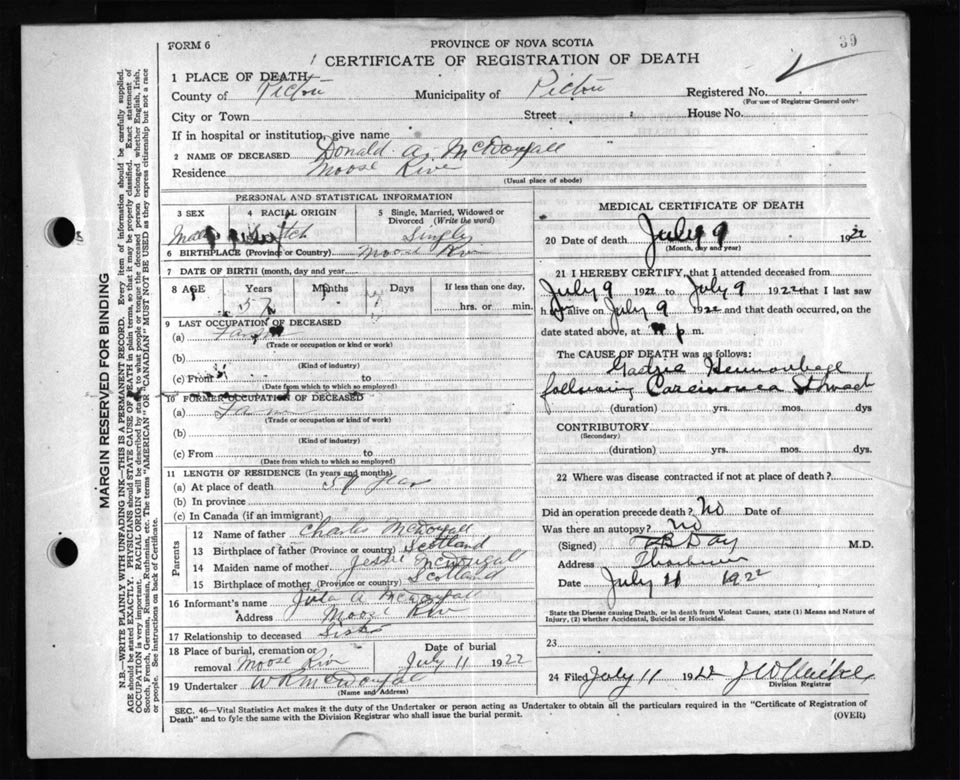 FORM 6
PROVINCE OF NOVA SCOTIA
39
CERTIFICATE OF REGISTRATION OF DEATH
1 PLACE OF DEATH
County of Pictou Municipality of Pictou Registered No.
(For use of Registrar General only)
City or Town Street House No.
If in hospital or institution, give name
2 NAME OF DECEASED Donald A. McDougall
Residence Moose River
(Usual place of abode)
PERSONAL AND STATISTICAL INFORMATION
3 SEX 4 RACIAL ORIGIN 5 Single, Married, Widowed or Divorced (Write the word)
Male Scotch Single
6 BIRTHPLACE (Province or Country) Moose River
7 DATE OF BIRTH (month, day and year)
8 AGE Years Months Days If less than one day,
57 hrs. or min.
9 LAST OCCUPATION OF DECEASED
(a) Farmer
(Trade or occupation or kind of work)
(b)
(Kind of industry)
(c) From to
(Date from which to which so employed)
10 FORMER OCCUPATION OF DECEASED
(a) Farmer
(Trade or occupation or kind of work)
(b)
(Kind of industry)
(c) From to
(Date from which to which so employed)
11 LENGTH OF RESIDENCE (In years and months)
(a) At place of death 57 years
(b) In province
(c) In Canada (if an immigrant)
Parents
12 Name of father Charles McDougall
13 Birthplace of father (Province or country) Scotland
14 Maiden name of mother Jessie McDougall
15 Birthplace of mother (Province or country) Scotland
16 Informant's name A McDougall
Address Moose River
17 Relationship to deceased Sister
18 Place of burial, cremation or removal Moose River Date of burial July 11 1922
19 Undertaker McDougall
(Name and Address)
MEDICAL CERTIFICATE OF DEATH
20 Date of death July 9 1922
(Month, day and year)
21 I HEREBY CERTIFY, that I attended deceased from
July 9 1922 to July 9 1922 that I last saw
h alive on July 9 1922 and that death occurred, on the
date stated above, at p. m.
The CAUSE OF DEATH was as follows:
Gastric Hemorrhage
following Carcinoma Stomach
(duration) yrs. mos. dys
CONTRIBUTORY
(Secondary)
(duration) yrs. mos. dys.
22 Where was disease contracted if not at place of death?
Did an operation precede death? No Date of
Was there an autopsy? No
(Signed) Day M.D.
Address Thorburn
Date July 11 1922
State the Disease causing Death, or in death from Violent Causes, state (1) Means and Nature of
Injury, (2) whether Accidental, Suicidal or Homicidal.
23
24 Filed July 11 1922
Division Registrar
SEC. 46—Vital Statistics Act makes it the duty of the Undertaker or person acting as Undertaker to obtain all the particulars required in the "Certificate of Registration of
Death" and to fyle the same with the Division Registrar who shall issue the burial permit.
(OVER)
MARGIN RESERVED FOR BINDING
N.B.—WRITE PLAINLY WITH UNFADING INK—THIS IS A PERMANENT RECORD. Every item of information should be carefully supplied.
AGE should be stated EXACTLY. PHYSICIANS should STATE CAUSE OF DEATH in plain terms, so that it may be properly classified. Exact statement of
OCCUPATION is very important. RACIAL ORIGIN will be described by stating to what people or tongue the deceased person belonged whether English, Irish,
Scotch, French, German, Russian, Ruthenian, etc. The terms "AMERICAN" OR "CANADIAN" MUST NOT BE USED as they express citizenship but not a race
or people. See instructions on back of Certificate.